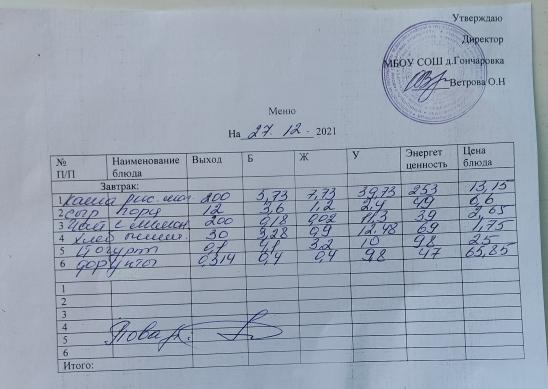 Утверждаю
Директор
МБОУ СОШ д.Гончаровка
Ветрова О.Н
Меню
На 27. 12 - 2021
№ П/П Наименование блюда Выход Б Ж У Энергет ценность Цена блюда
Завтрак:
1 Каша рис. мол 200 5,73 7,73 39,73 253 13,15
2 Сыр порц 12 3,6 1,2 2,4 49 6,6
3 Чай с молок. 200 0,18 0,02 39 2,65
4 Хлеб пшен. 30 3,28 0,9 12.48 69 1,75
5 Йогурт 3.2 10 98 25
6 фрукты 0,4 0,4 98 47 65,85
1
2
3
4
5
6
Повар.
Итого: